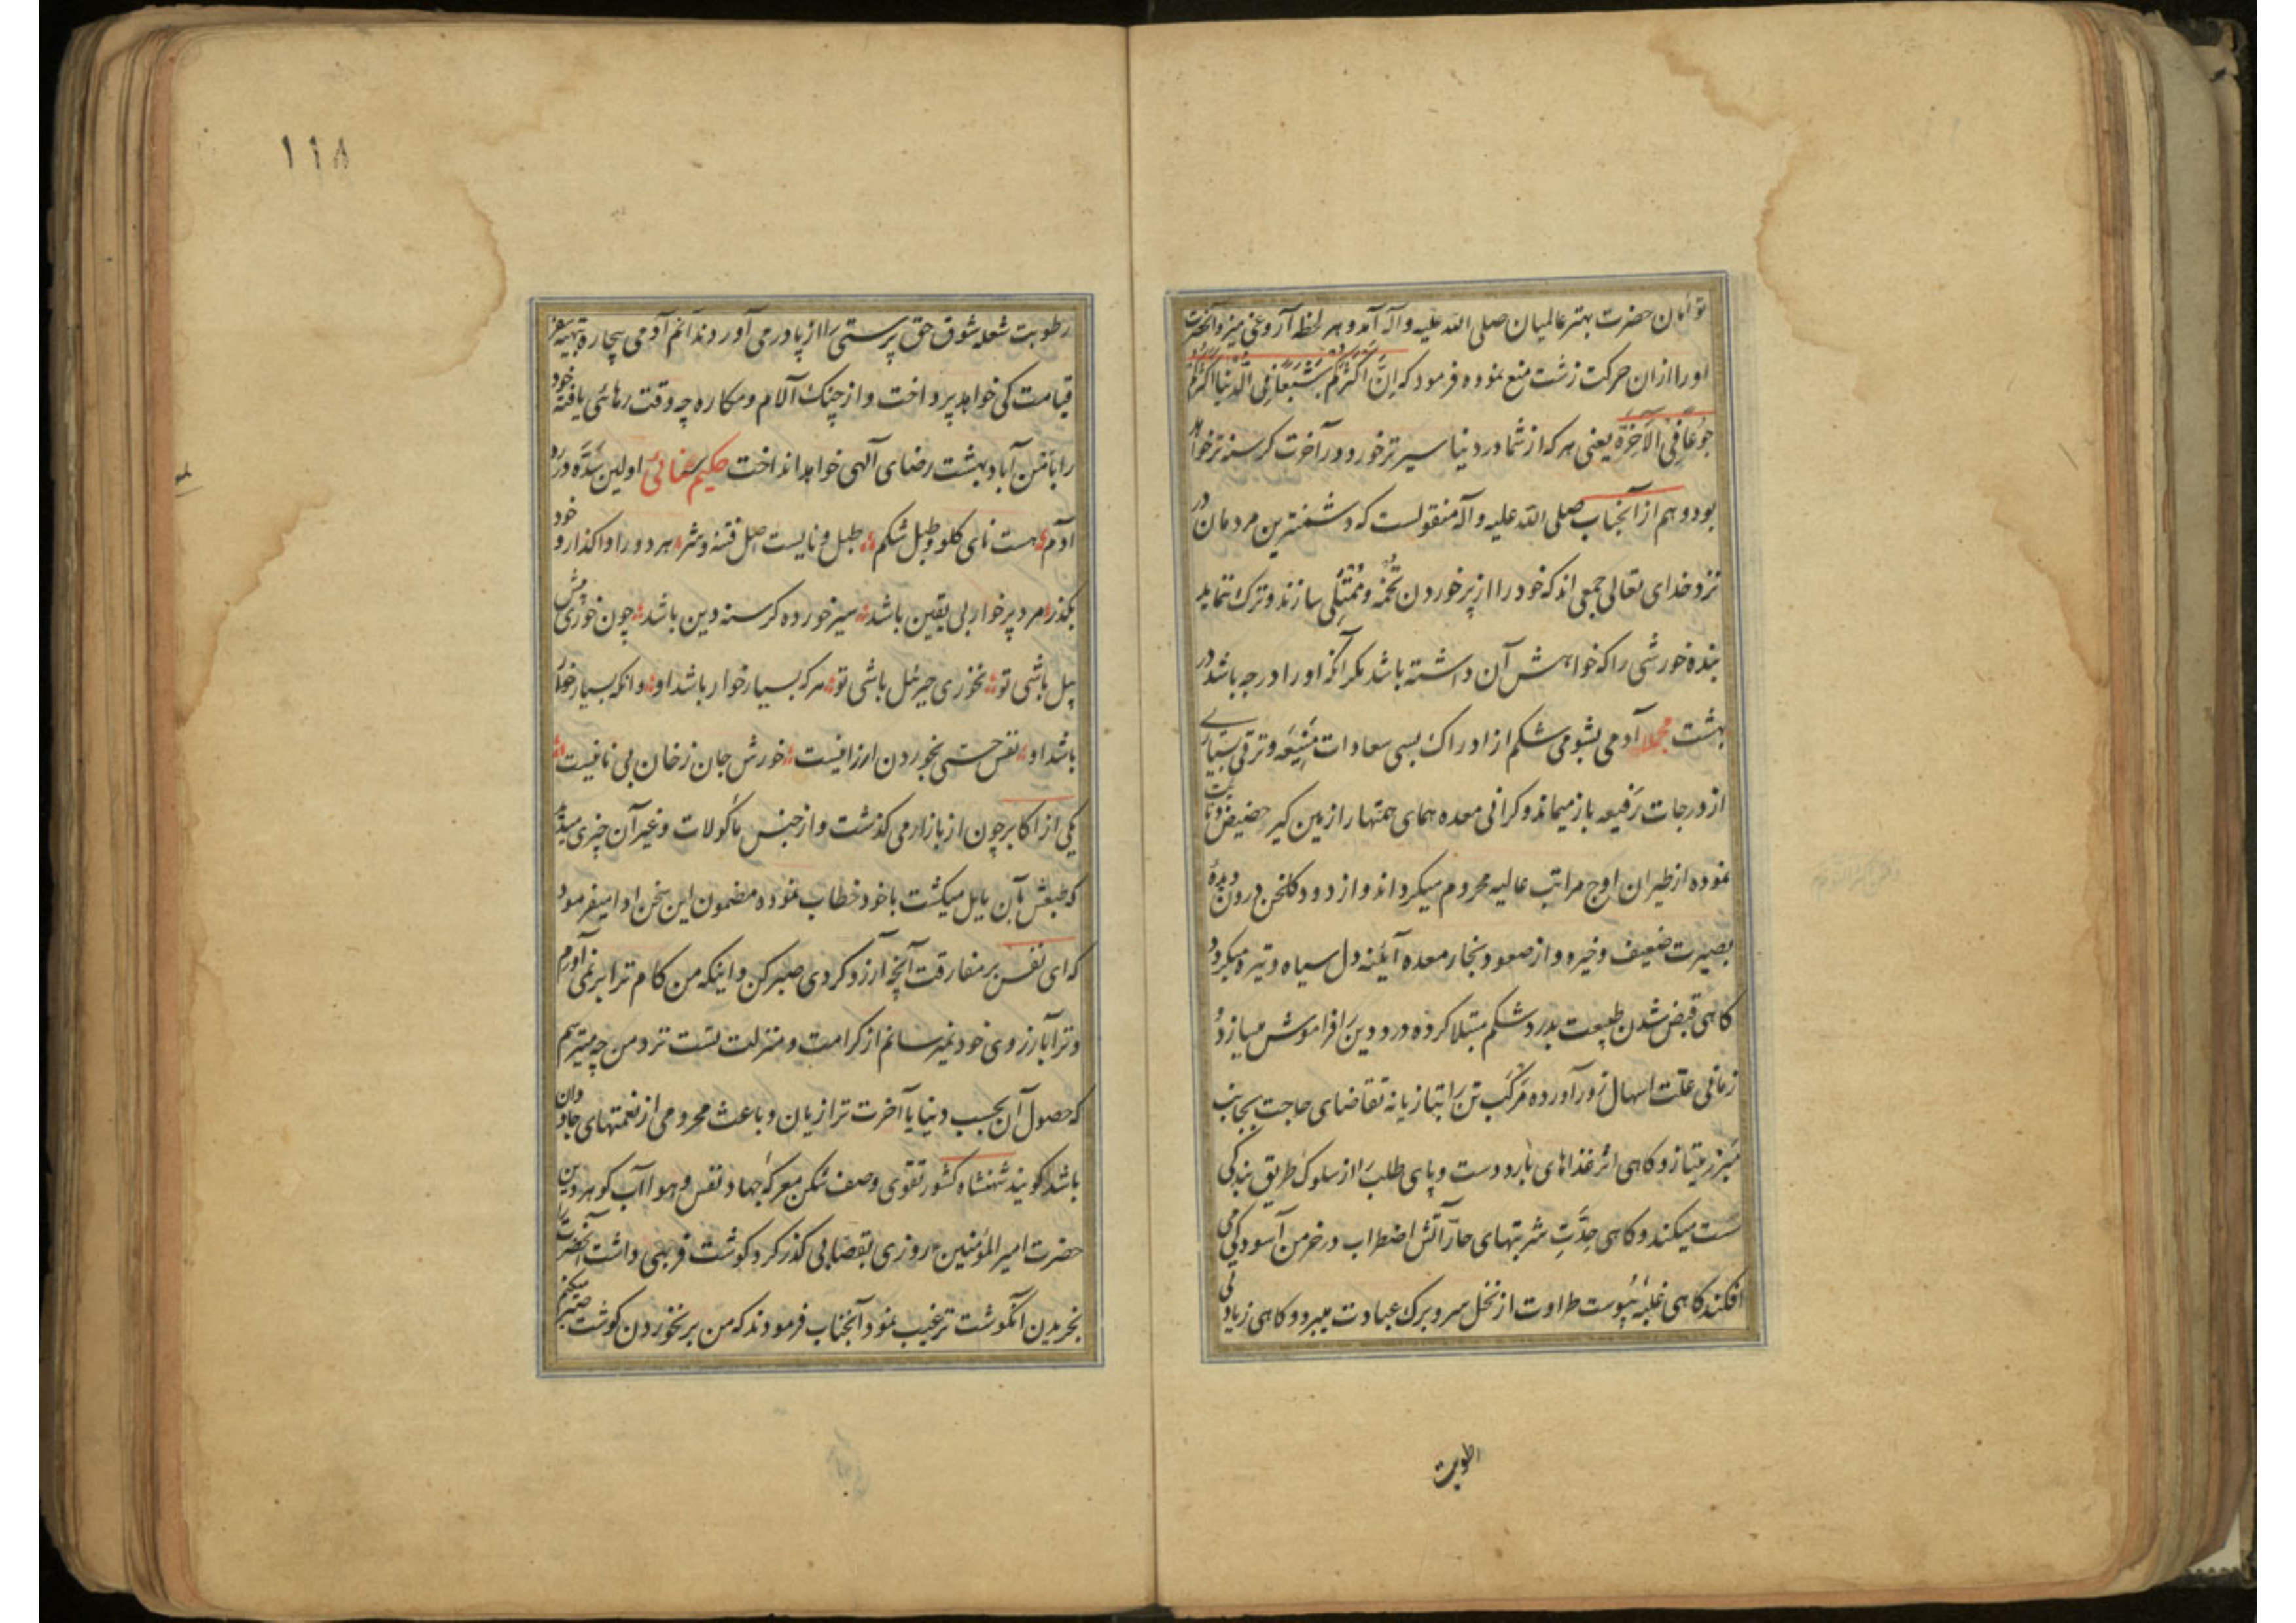 توأمان حضرت بهتر عالمیان صلی الله علیه وآله آمد و هر لحظه آروغی میزد و آنحضرت
او را از ان حرکت زشت منع نموده فرمود که اِنَّ اَکثَرَکُم شَبَعًا فِی الدُّنیا اَکثَرُکُم
جُوعًا فِی الآخِرَةِ یعنی هر که از شما در دنیا سیرتر خورد در آخرت کرسنه تر خواهد
بود و هم از آنجناب صلی الله علیه وآله منقولست که دشمنترین مردمان در
نزد خدای تعالی جمعی اند که خود را از پر خوردن تخمه و ممتلی سازند و ترک ننماید
بنده خورشی را که خواهش آن داشته باشد مکر آنکه او را درجه باشد در
بهشت مجملا آدمی بشومی شکم از ادراک بسی سعادات منیعه و ترقی بسیاری
از درجات رفیعه باز میماند و کرانی معده همای همتها را زمین کیر حضیض
نموده از طیران اوج مراتب عالیه محروم میکرداند و از دود کلخن درون دیدهٔ
بصیرت ضعیف و خیره و از صعود بخار معده آیئنه دل سیاه و تیره میکردد
کاهی قبض شدن طبیعت بدرد شکم مبتلا کرده درد دین را فراموش میسازد و
زمانی علت اسهال زور آورده مرکب تن را بتازیانه تقاضای حاجت بجانب
مبرز میتازد و کاهی اثر غذاهای بارد دست و پای طلب را از سلوک طریق بندکی
سست میکند و کاهی حِدَّتِ شربتهای حارّ آتش اضطراب در خرمن آسودکی می
افکند کاهی غلبهٔ یبوست طراوت از نخل سر و برک عبادت میبرد و کاهی زیادتی
رطوبت
۱۱۸
رطوبت شعله شوق حق پرستی را از پا در می آورد ندانم آدمی بیچاره بتهیه سفر
قیامت کی خواهد پرداخت و از چنک آلام و مکاره چه وقت رهائی یافته خود
را بامن آباد بهشت رضای آلهی خواهد انداخت حکیم سنائی اولین سدّه در ره
آدم هست نای کلو و طبل شکم طبل و نایست اصل فتنه و شر هر دو را واکذار و خود
بکذر مرد پر خوار بی یقین باشد سیر خورده کرسنه دین باشد چون خوری بیش
پیل باشی تو نخوری جبرئیل باشی تو هر که بسیار خوار باشد او وانکه بسیار خوار
باشد او نفس حسی بخوردن ارزانیست خورش جان ز خان بی نانیست
یکی از اکابر چون از بازار می کذشت و از جنس مأکولات و غیر آن چیزی میدید
که طبعش بآن مایل میکشت با خود خطاب نموده مضمون این سخن ادا میفرمود
که ای نفس بر مفارقت آنچه آرزو کردی صبر کن و اینکه من کام ترا بر نمی آورم
و ترا بآرزوی خود نمیرسانم از کرامت و منزلت تست نزد من چه میترسم
که حصول آن بحسب دنیا یا آخرت ترا زیان و باعث محرومی از نعمتهای جاودان
باشد کویند شهنشاه کشور تقوی و صف شکن معرکهٔ جهاد نفس و هوا آب کوهر دین
حضرت امیر المؤمنین روزی بقصابی کذر کرد کوشت فربهی داشت آنحضرت را
بخریدن آنکوشت ترغیب نمود آنجناب فرمودند که من بر نخوردن کوشت صبر میکنم